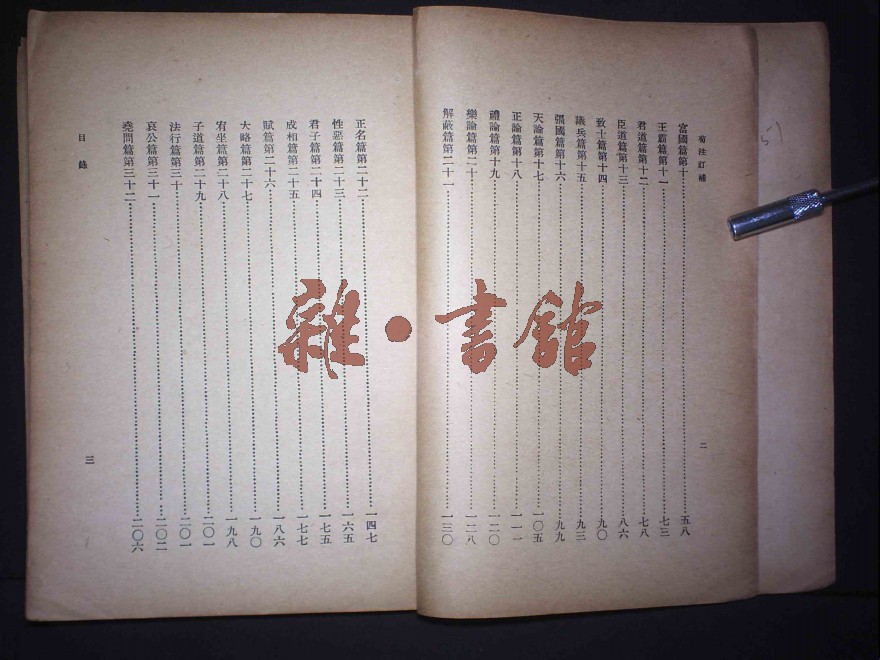 荀注訂補
富國篇第十……五八
王霸篇第十一……七三
君道篇第十二……七八
臣道篇第十三……八六
致士篇第十四……九〇
議兵篇第十五……九三
彊國篇第十六……九九
天論篇第十七……一〇五
正論篇第十八……一一一
禮論篇第十九……一二〇
樂論篇第二十……一二八
解蔽篇第二十一……一三〇
二
正名篇第二十二……一四七
性惡篇第二十三……一六五
君子篇第二十四……一七五
成相篇第二十五……一七七
賦篇第二十六……一八六
大略篇第二十七……一九〇
宥坐篇第二十八……一九八
子道篇第二十九……二〇一
法行篇第三十……二〇一
哀公篇第三十一……二〇二
堯問篇第三十二……二〇六
目錄
三
雜·書館
51